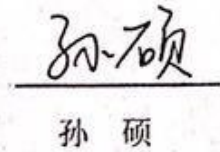 孙硕
孙 硕